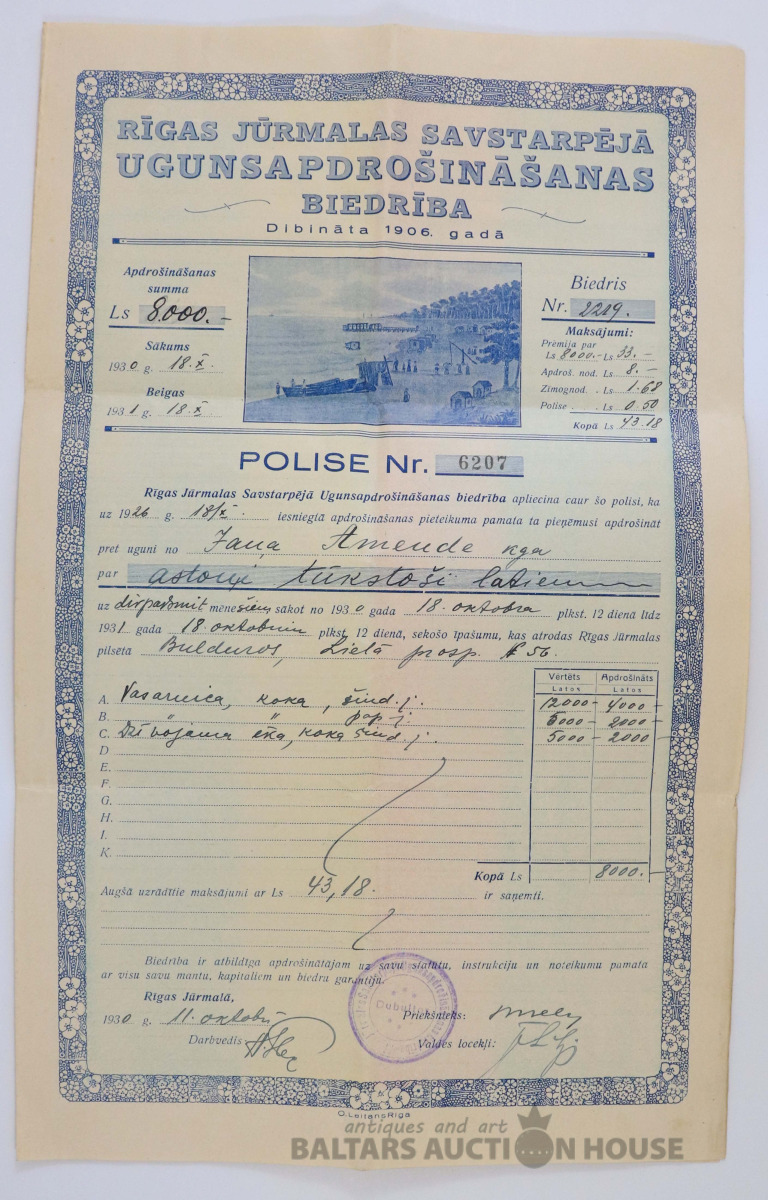 RĪGAS JŪRMALAS SAVSTARPĒJĀ
UGUNSAPDROŠINĀŠANAS
BIEDRĪBA
Dibināta 1906. gadā
Apdrošināšanas
summa
Ls 8000.-
Sākums
1930 g. 18.X.
Beigas
1931 g. 18.X
Biedris
Nr. 2219.
Maksājumi:
Prēmija par
Ls 8000.- Ls 33.-
Apdroš. nod. Ls 8.-
Zīmognod. . Ls 1.68
Polise . . . . Ls 0.50
Kopā Ls 43.18
POLISE Nr. 6207
Rīgas Jūrmalas Savstarpējā Ugunsapdrošināšanas biedrība apliecina caur šo polisi, ka
uz 1926 g. 18/X. iesniegtā apdrošināšanas pieteikuma pamata ta pieņēmusi apdrošināt
pret uguni no Jāņa Amende kga
par astoņi tūkstoši latiem
uz divpadsmit mēnešiem sākot no 1930 gada 18. oktobra plkst. 12 dienā līdz
1931 gada 18. oktobrim plkst. 12 dienā, sekošo īpašumu, kas atrodas Rīgas Jūrmalas
pilsēta Bulduros, Lielā prosp. № 56.
Vērtēts Apdrošināts
Latos Latos
A. Vasarnīca, koka, šind. j. 12000 - 4000 -
B. " " pap. j. 5000 - 2000 -
C. Dzīvojama ēka, koka šind. j. 5000 - 2000 -
D
E.
F.
G.
H.
I.
K.
Kopā Ls 8000.-
Augšā uzrādītie maksājumi ar Ls 43,18. ir saņemti.
Biedrība ir atbildīga apdrošinātājam uz savu statūtu, instrukciju un noteikumu pamata
ar visu savu mantu, kapitaliem un biedru garantiju.
Rīgas Jūrmalā,
1930 g. 11. oktobrī
Dubulti
Priekšnieks:
Darbvedis
Valdes locekļi:
O. Leitans Rīga
antiques and art
BALTARS AUCTION HOUSE